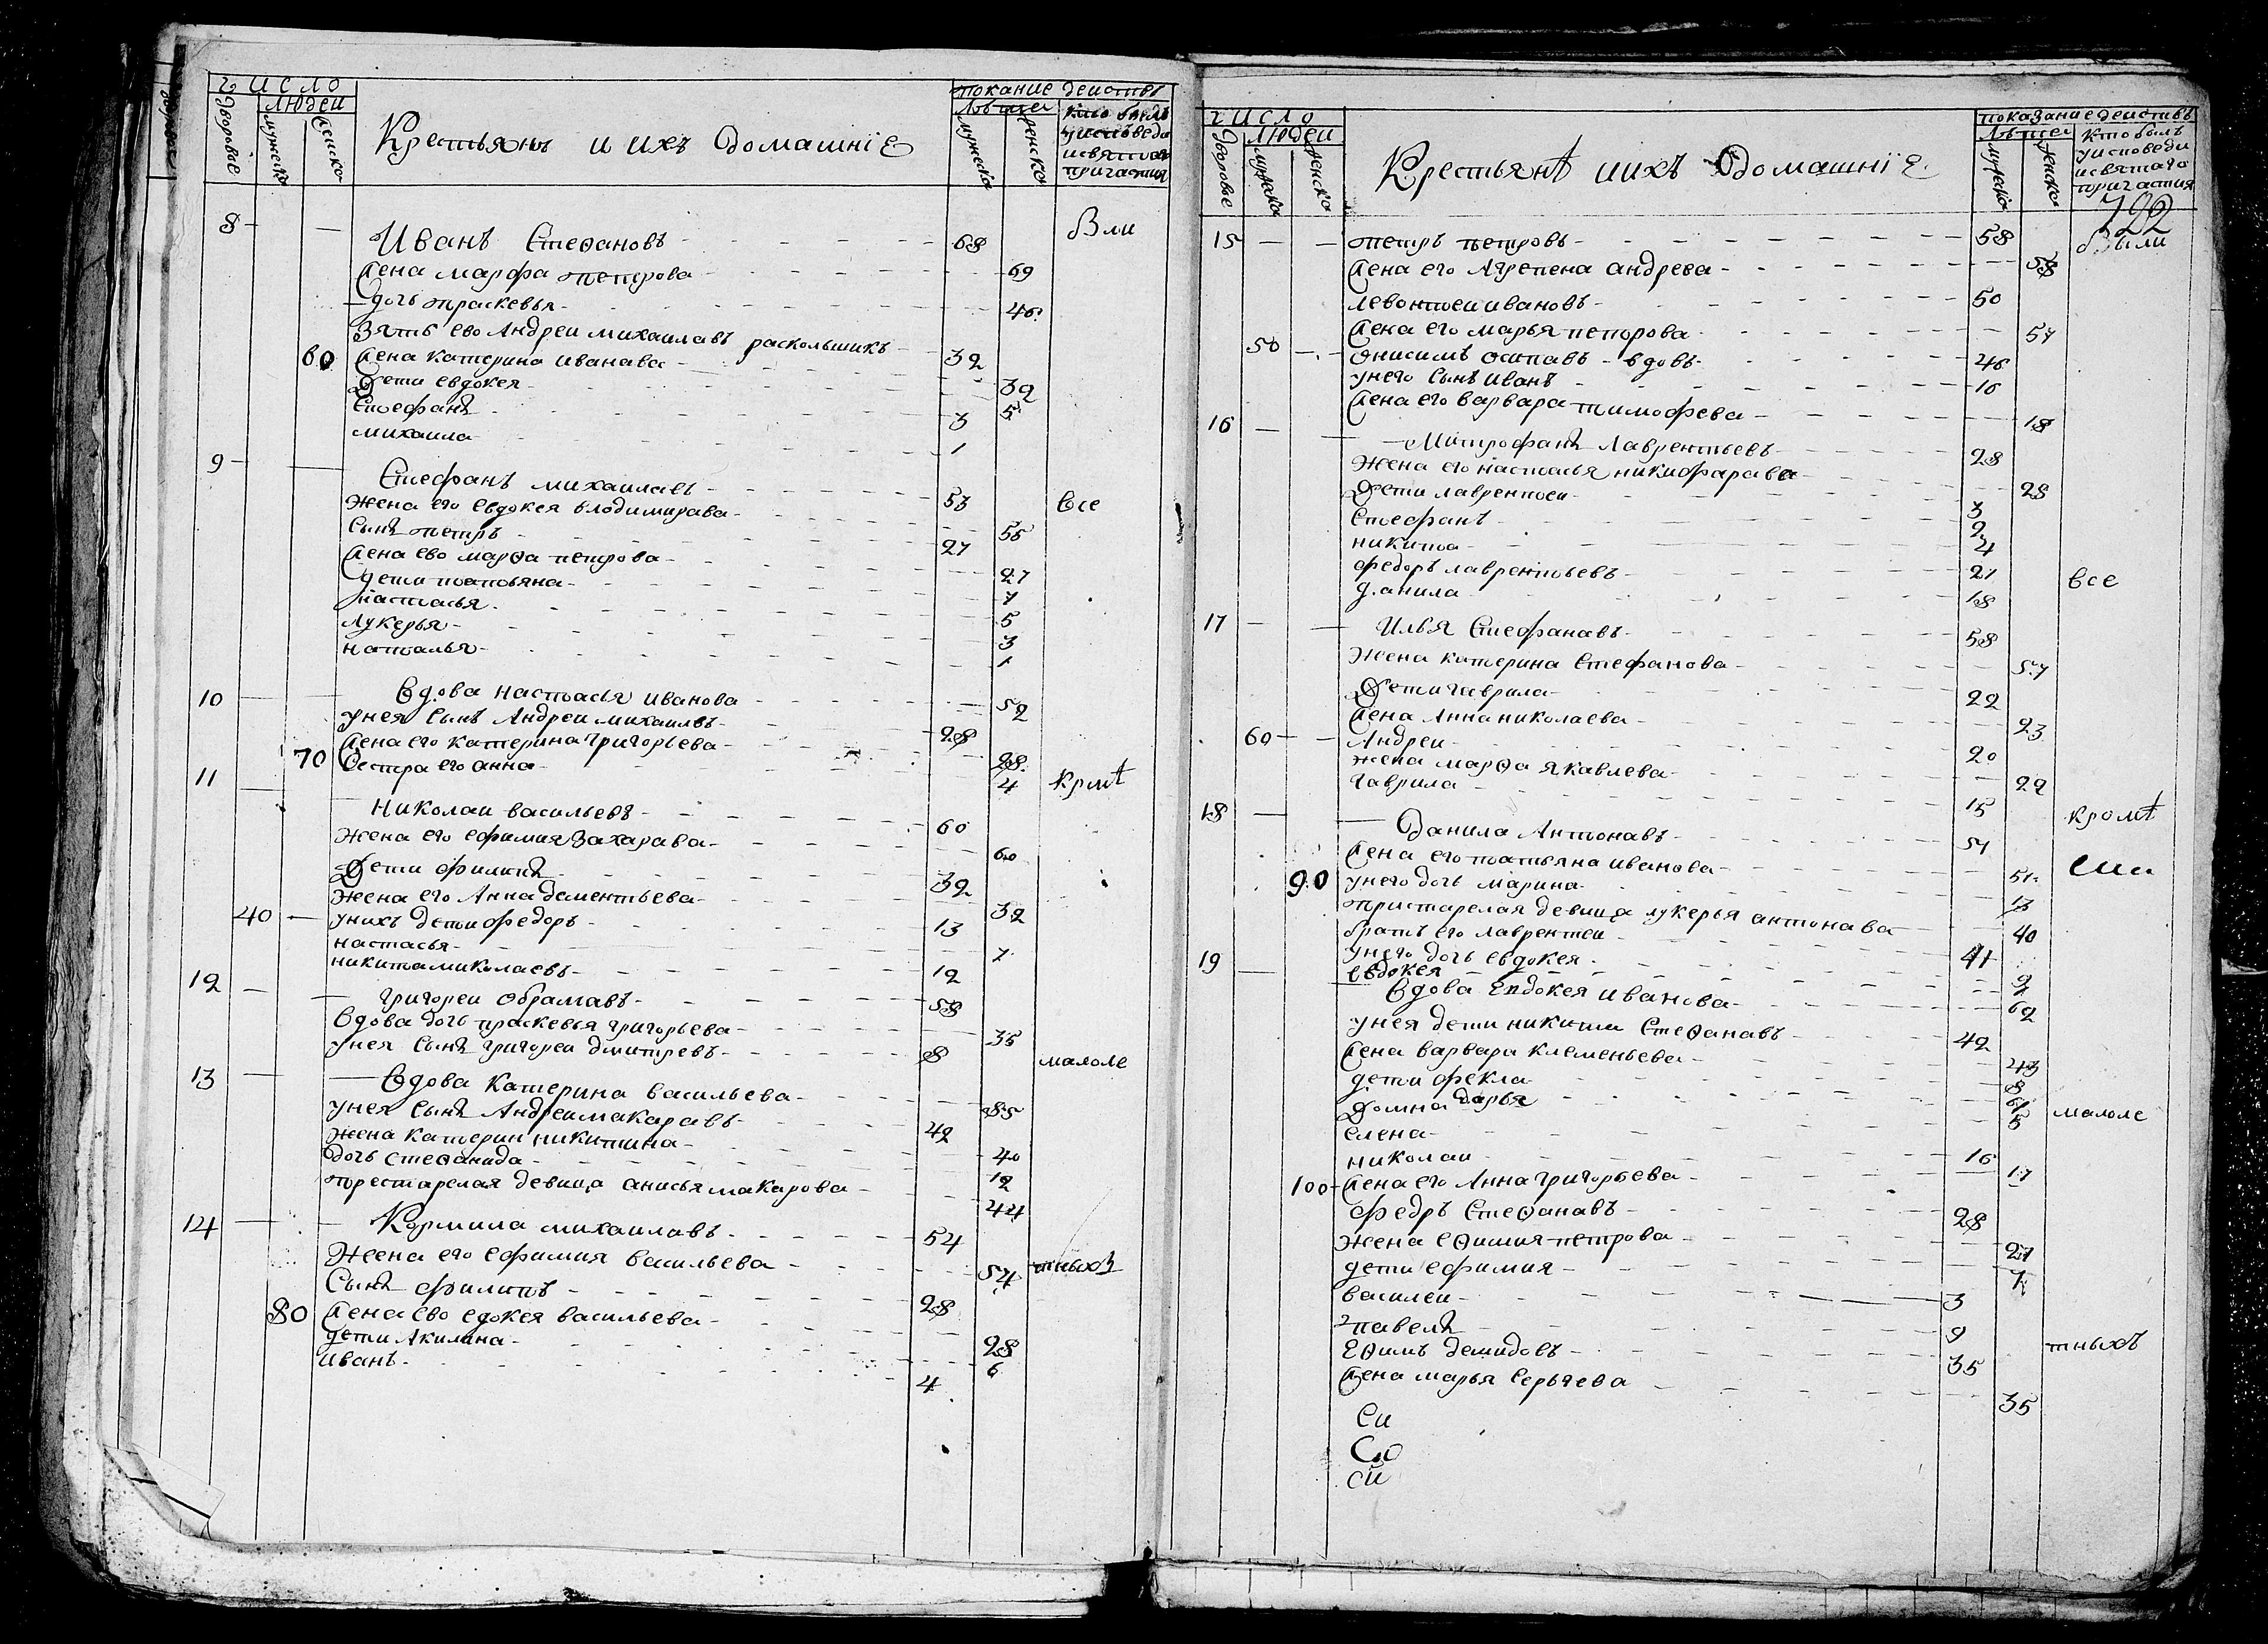 число
людей
Дворовые
мужска
женска
Крестьянъ и ихъ домашніе
покание действъ
лъта
мужска
женска
кто былъ
у исповеди
и святаго
причастия
8 Иванъ Стефановъ 68 Вли
Жена марфа петрова 69
дочь праскевья 46
Зять ево Андреи михаилавъ раскольшикъ 32
60 Жена катерина иванава 32
Дети евдокея 5
Стефанъ 3
михаила 1
9 Стефанъ михаилавъ 53 все
жена его евдокея влодимирава 55
Сынъ петръ 27
Жена ево марѳа петрова 27
дети татьяна 7
настасья 5
лукерья 3
наталья 1
10 Вдова настасья иванова 52
унея сынъ Андреи михаилвъ 28
Жена его катерина григорьева 28
70 Сестра его анна 4 кромѣ
11 николаи васильевъ 60
жена его ефимия захарава 60
Дети филипъ 32
жена его Анна дементьева 32
40 унихъ дети федоръ 13
настасья 7
никита миколаевъ 12
12 григореи обрамавъ 58
Вдова дочь праскевья григорьева 35
унея сынъ григореи дмитревъ 8 малоле
13 Вдова катерина васильева 85
унея сынъ Андреи макаравъ 42
жена катерин никитина 40
дочь стеѳанида 12
престарелая девица анисья макарова 44
14 Кормила михаилавъ 54
жена его ефимия васильева 54 тныхъ
Сынъ филипъ 28
80 Жена ево едокея васильева 28
дети Акилина 6
иванъ 4
число
людей
Дворовые
мужска
женска
Крестьянъ и ихъ домашніе
показание действъ
лъта
мужска
женска
кто былъ
у исповеди
и святаго
причастия
722
15 петръ петровъ 58 Были
Жена его Агрепена андрева 58
левонтеи ивановъ 50
Жена его марья петорова 57
50 онисимъ осипавъ вдовъ 46
унего сынъ иванъ 16
Жена его варвара тимофева 18
16 Митрофанъ лаврентьевъ 28
жена его настасья никифарава 28
Дети лаврентеи 3
Стефанъ 2
никита 4
федоръ лаврентьевъ 21 все
данила 18
17 Илья Стефанавъ 58
жена катерина стефанова 57
Дети гаврила 22
Жена Анна николаева 23
60 Андреи 20
жена марѳа якавлева 22
гаврила 15 кромѣ
18 Данила Антонавъ 51
Жена его татьяна иванова 51 сих
90 унего дочь марина 13
пристарелая девица лукерья антонава 40
братъ его лаврентеи 41
унего дочь евдокея 9
евдокея 2
19 Вдова Евдокея иванова 62
унея дети никити Стеѳанавъ 42
Жена варвара клеменьева 43
дети фекла 8
Домна дарья 6 малоле
елена 5
николаи 16
100 Жена его Анна григорьева 17
федръ Стеѳанавъ 28
жена еѳимия петрова 27
дети ефимия 7
василеи 3
павелъ 9
Еѳимъ демидовъ 35 тныхъ
Жена марья Сергѣева 35
Си
Сю
Сй